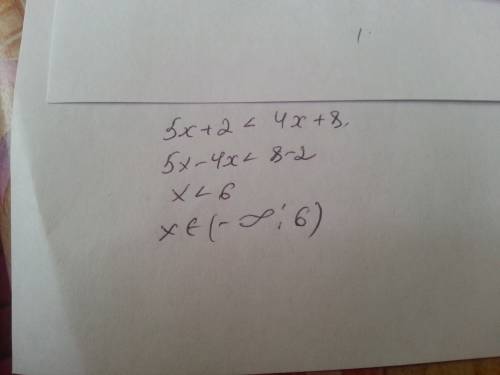 5x+2 < 4x+8.
5x-4x< 8-2
x < 6
x ∈ (-∞; 6)